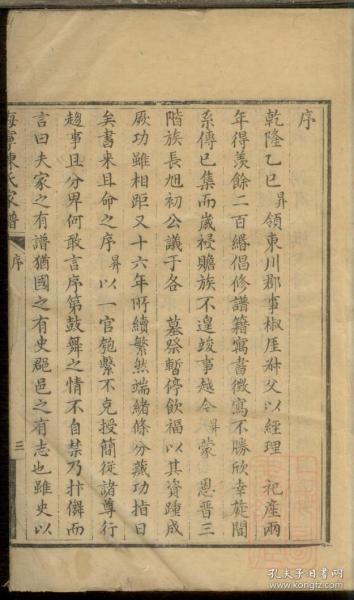 序
乾隆乙巳昇領東川郡事椒厓叔父以經理 祀產兩
年得羨餘二百緡倡修譜籍寓書徵寫不勝欣幸旋聞
系傳已集而歲祲贍族不遑竣事越今昇蒙 恩晋三
階族長旭初公議于各 墓祭暫停飲福以其資踵成
厥功雖相距又十六年所續繁然端緒條分蕆功指日
矣書来且命之序昇以一官匏繫不克授簡從諸尊行
趨事且分畀何敢言序第鼓舞之情不自禁乃抃儛而
言曰夫家之有譜猶國之有史郡邑之有志也雖史以
海寧陳氏家譜 序 三
孔夫子旧书网